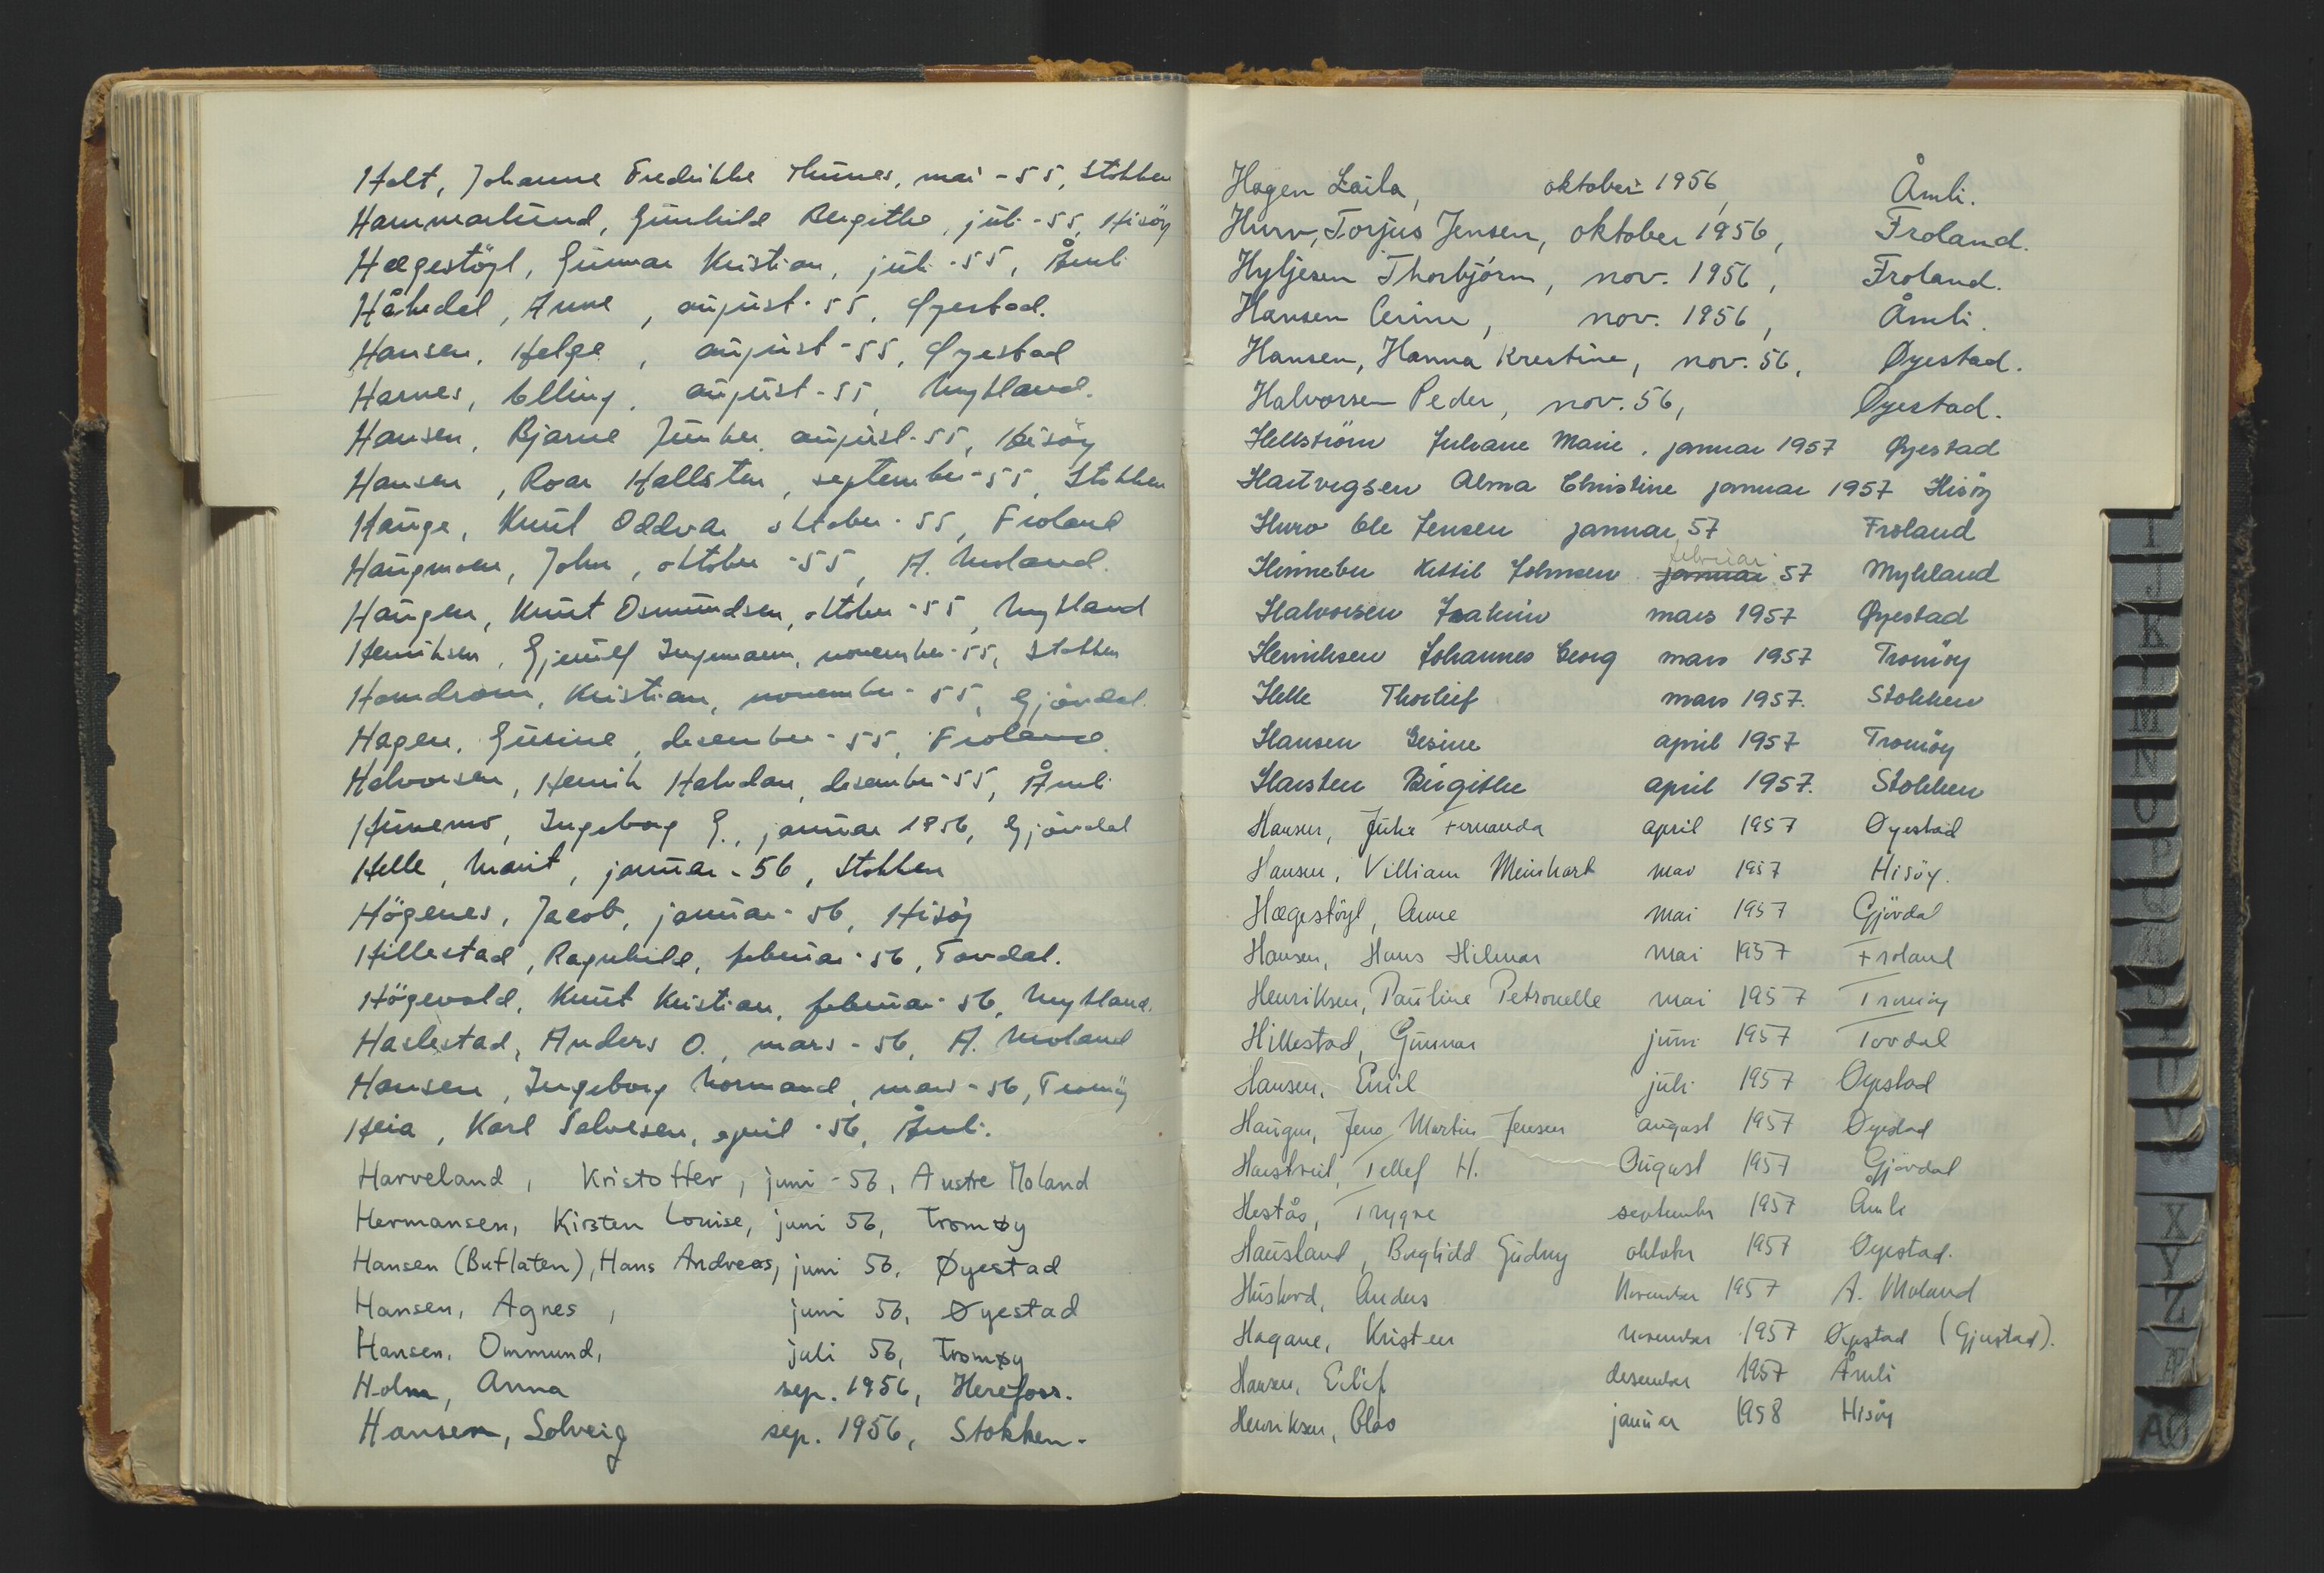 Holt, Johanne Fredrikke Thünes, mai - 55, Stokken
Hammarlund, Gunhild Bergithe, juli - 55, Hisöy
Hægestöyl, Gunnar Kristian, juli - 55, Åmli
Håkedal, Anne, august - 55, Øyestad.
Hansen, Helge, august - 55, Øyestad
Harnes, Elling, august - 55, Mykland.
Hansen, Bjarne Junker, august - 55, Hisöy
Hansen, Roar Hallsten, september - 55, Stokken
Hauge, Knut Oddvar oktober - 55, Froland
Haugmoen, John, oktober - 55, A. Moland.
Haugen, Knut Osmundsen, oktober - 55, Mykland
Henriksen, Gjerulf Ingemann, november - 55, Stokken
Homdrom, Kristian, november - 55, Gjövdal.
Hagen, Gusine, desember - 55, Froland.
Halvorsen, Henrik Halvdan, desember - 55, Åmli
Hunemo, Ingeborg G., januar 1956, Gjövdal
Helle, Marit, januar - 56, Stokken
Högenes, Jacob, januar - 56, Hisöy
Hillestad, Ragnhild, februar - 56, Tovdal.
Högevold, Knut Kristian, februar - 56, Mykland.
Haslestad, Anders O., mars - 56, A. Moland
Hansen, Ingeborg Normand, mars - 56, Tromöy
Heia, Karl Salvesen, april - 56, Åmli.
Harveland, Kristoffer, juni - 56, Austre Moland
Hermansen, Kirsten Louise, juni 56, Tromøy
Hansen (Buflaten), Hans Andreas, juni 56, Øyestad
Hansen, Agnes, juni 56, Øyestad
Hansen, Ommund, juli 56, Tromøy
Holm, Anna sep. 1956, Herefoss.
Hansen, Solveig sep. 1956, Stokken.
Hagen Laila, oktober 1956, Åmli.
Hurv, Torjus Jensen, oktober 1956, Froland.
Hyljesen Thorbjörn, nov. 1956, Froland.
Hansen Cerine, nov. 1956, Åmli.
Hansen, Hanna Krestine, nov. 56, Øyestad.
Halvorsen Peder, nov. 56, Øyestad.
Hellström Juliane Marie, januar 1957 Øyestad
Hartvigsen Alma Christine januar 1957 Hisöy
Hurv Ole Jensen januar 57 Froland
Hinnebu Kittil Johnsen januar februar 57 Mykland
Halvorsen Joakim mars 1957 Øyestad
Henriksen Johannes Georg mars 1957 Tromöy
Helle Thorleif mars 1957. Stokken
Hansen Gesine april 1957 Tromöy
Harsten Birgithe april 1957. Stokken
Hansen, Julie Fernanda april 1957 Øyestad
Hansen, Villiam Meinhart mai 1957 Hisöy.
Hægestöyl, Anne mai 1957 Gjövdal
Hansen, Hans Hilmar mai 1957 Froland
Henriksen, Pauline Petronelle mai 1957 Tromöy
Hillestad, Gunnar juni 1957 Tovdal
Hansen, Emil juli 1957 Øyestad
Haugen, Jens Martin Jensen august 1957 Øyestad
Harstveit, Tellef H. August 1957 Gjövdal
Hestås, Trygve september 1957 Åmli
Hausland, Borghild Gudny oktober 1957 Øyestad.
Anders November 1957 A. Moland
Hagane, Kristen november 1957 Øyestad (Gjerstad).
Hansen, Eilif desember 1957 Åmli
Henriksen, Olav januar 1958 Hisöy
I
J
K
L
M
N
O
P
Q
R
S
T
U
V
X
Y
Z
Æ
AØ